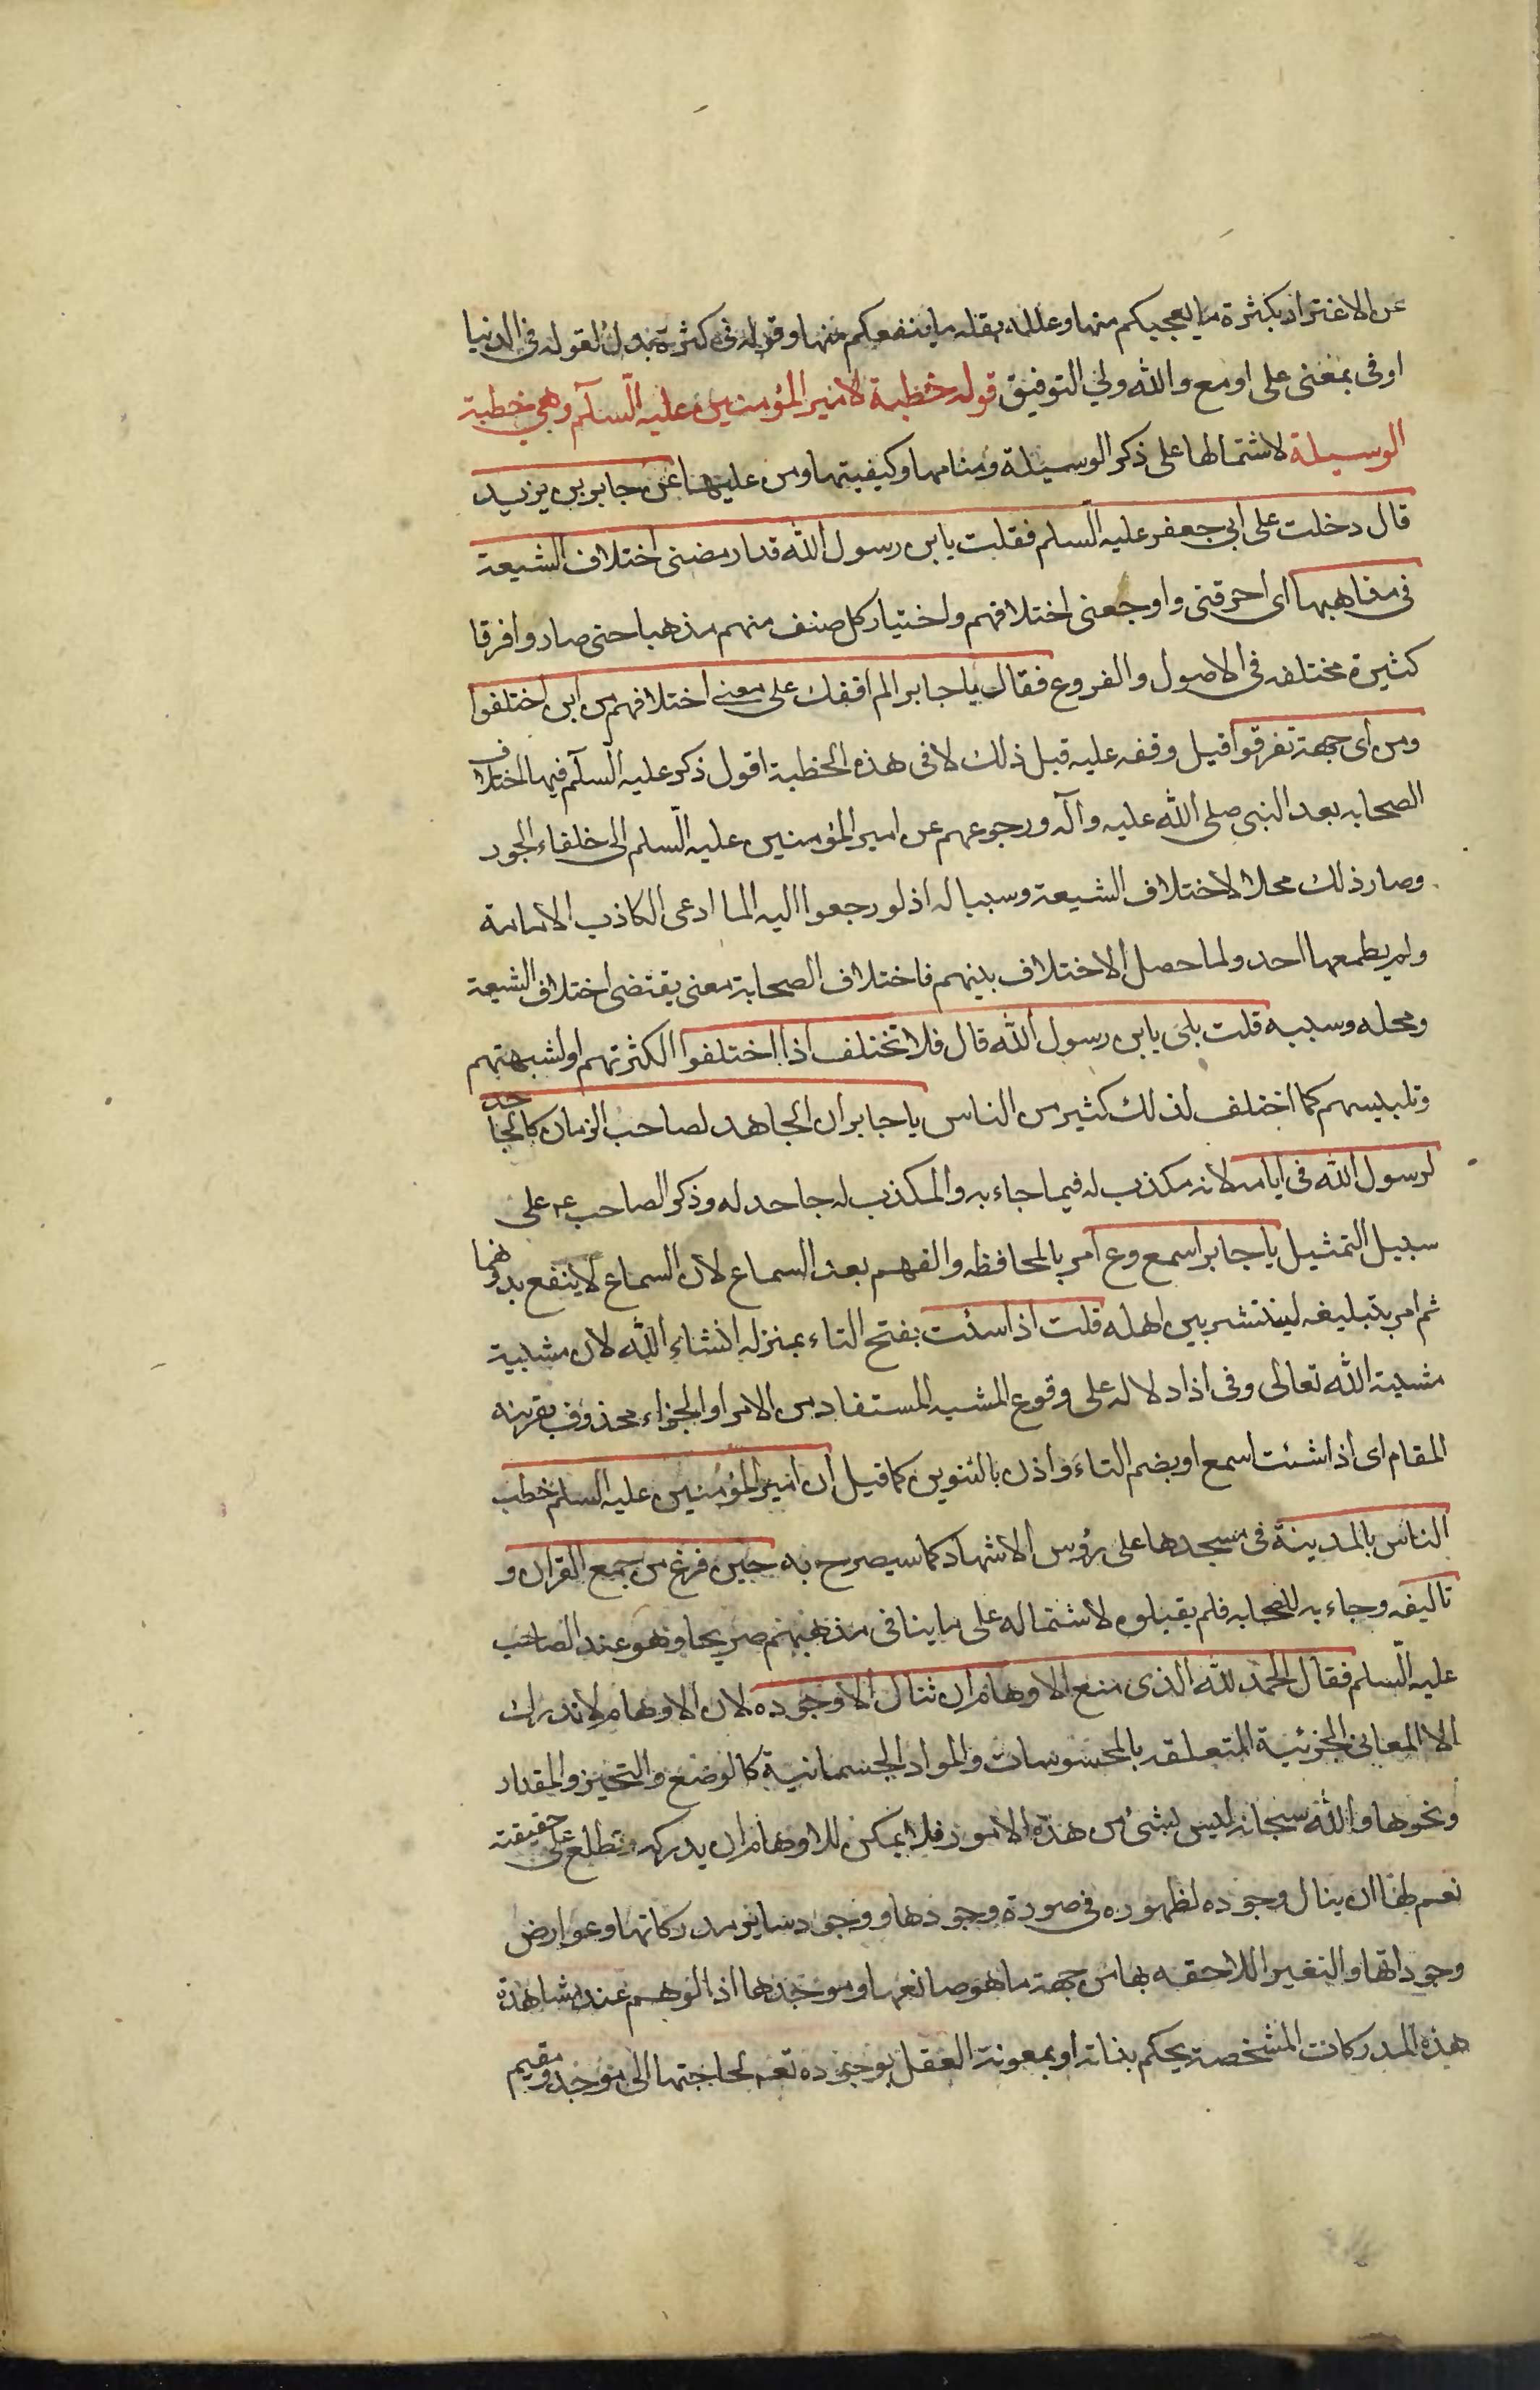 عن الاغترار بكثرة ما يعجبكم منها وعلله بقلة ما ينفعكم منها وقوله فى كثرة بدل لقوله فى الدنيا
او فى بمعنى على او مع والله ولي التوفيق قوله خطبة لامير المؤمنين عليه السلام وهي خطبة
الوسيلة لاشتمالها على ذكر الوسيلة ومنامها وكيفيتها ومن عليها عن جابر بن يزيد
قال دخلت على ابى جعفر عليه السلم فقلت يا بن رسول الله قد ارمضنى اختلاف الشيعة
فى مذاهبها اى احرقنى واوجعنى اختلافهم واختيار كل صنف منهم مذهبا حتى صاروا فرقا
كثيرة مختلفه فى الاصول والفروع فقال يا جابر الم اقفك على معنى اختلافهم من اين اختلفوا
ومن اى جهة تفرقوا قيل وقفه عليه قبل ذلك لا فى هذه الخطبة اقول ذكر عليه السلم فيها اختلاف
الصحابه بعد النبى صلى الله عليه وآله ورجوعهم عن امير المؤمنين عليه السلم الى خلفاء الجور
وصار ذلك محلا لاختلاف الشيعة وسببا له اذ لو رجعوا اليه لما ادعى الكاذب الامامة
ولم يطمعها احد ولما حصل الاختلاف بينهم فاختلاف الصحابة معنى يقتضى اختلاف الشيعة
ومحله وسببه قلت بلى يا بن رسول الله قال فلا تختلف اذا اختلفوا لكثرتهم او لشبهتهم
وتلبيسهم كما اختلف لذلك كثير من الناس يا جابر ان الجاهد لصاحب الزمان كالجاحد
لرسول الله فى ايامه لانه مكذب له فيما جاء به والمكذب له جاحد له وذكر الصاحب ع على
سبيل التمثيل يا جابر اسمع وع امر بالمحافظه والفهم بعد السماع لان السماع لا ينفع بدونهما
ثم امر بتبليغه لينتشر بين اهله قلت اذا سئت بفتح التاء بمنزله انشاء الله لان مشيية
مشية الله تعالى وفى اذا دلاله على وقوع المشيه المستفاد من الامر او الجزاء محذوف بقرينة
المقام اى اذا شئت اسمع او بضم التاء واذن بالتنوين كما قيل ان امير المؤمنين عليه السلم خطب
الناس بالمدينة فى مسجدها على رؤس الاشهاد كما سيصرح به حين فرغ من جمع القران و
تاليفه وجاء به للصحابه فلم يقبلوه لاشتماله على ما ينافى مذهبهم صريحا وهو عند الصاحب
عليه السلم فقال الحمد لله الذى منع الاوهام ان تنال الا وجوده لان الاوهام لا تدرك
الا المعانى الجزئية المتعلقه بالمحسوسات والمواد الجسمانية كالوضع والتحيز والمقدار
ونحوها والله سبحانه ليس لشئ من هذه الامور فلا يمكن للاوهام ان يدركه وتطلع على حقيقته
نعم لها ان ينال وجوده لظهوره فى صورة وجودها ووجود ساير مدركاتها وعوارض
وجوداتها والتغير اللاحقه بها من جهة ما هو صانعها وموجدها اذ الوهم عند مشاهدة
هذه المدركات المشخصة يحكم بذاته او بمعونة العقل بوجوده تعم لحاجتها الى موجد ومقيم